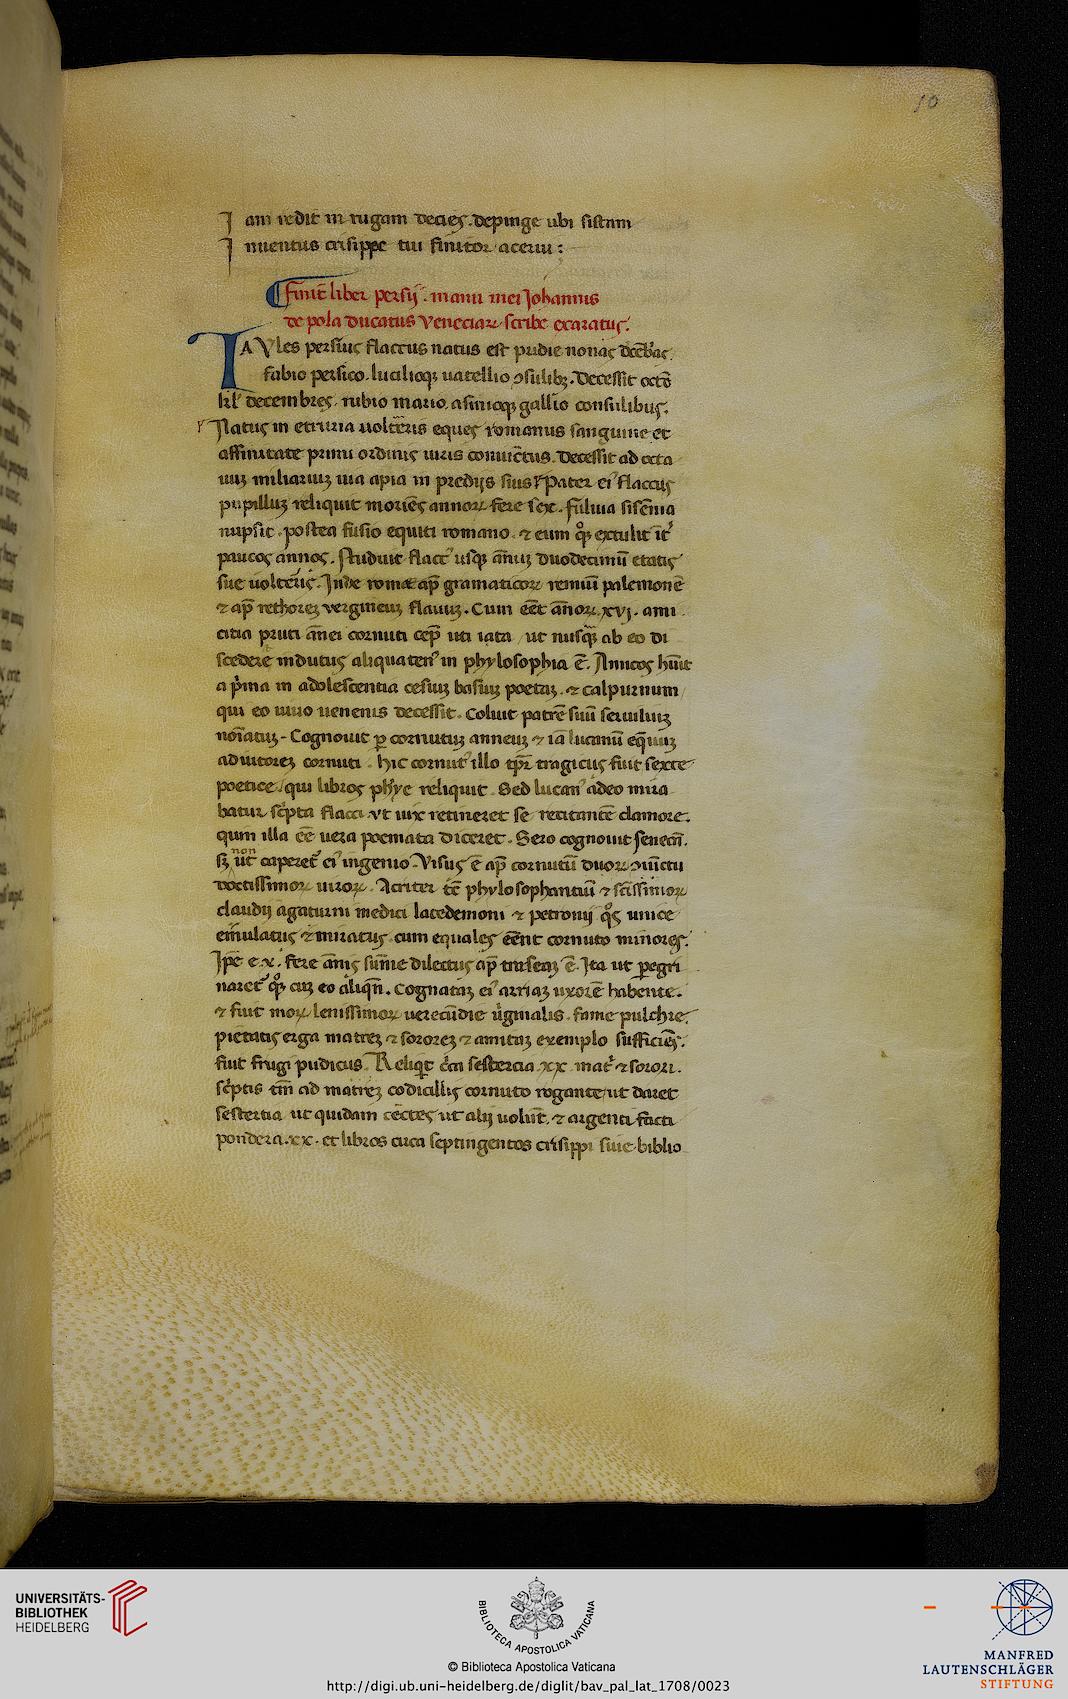 10
Iam redit in rugam decies. depinge ubi sistam
Inuentus crisippe tui finitor acerui:
Finit̄ liber persij. manu mei Johannis
de pola ducatus Veneciarꝝ scribe exaratus.
TAVles persius flaccus natus est pridie nonas dec̄b̄as.
fabio persico. lucilioqꝫ uatellio ꝯsulibꝫ. Decessit octō
kl̄ decembres. rubio mario. asinioqꝫ gallio consulibus.
Natus in etruria uolterris eques romanus sanguine et
affinitate primi ordinis uiris coniūctus. Decessit ad octa
uuꝫ miliariuꝫ uia apia in predijs suis. Pater eiꝰ flaccus
pupilluꝫ reliquit moriēs annorꝝ fere sex. fuluia sisēnia
nupsit. postea fusio equiti romano. ⁊ eum qͦꝫ extulit īt̾
paucos annos. Studuit flaccꝰ usqꝫ ānuꝫ duodecimū etatis
sue uolterris. Inde rome ap̄ gramaticorꝝ remiū palemonē
⁊ ap̄ rethoreꝫ vergineuꝫ flauuꝫ. Cum eēt ānorꝝ xvj. ami
citia pruti ānei cornuti cep̄ uti iata ut nusqꝫ ab eo di
scedere indutus aliquatenꝰ in phylosophia ē. Amicos hūit
a p̄ma in adolescentia cesiuꝫ basuꝫ poetaꝫ. ⁊ calpurnum
qui eo uiuo uenenis decessit. Coluit patrē suū seruiliuꝫ
noīatuꝫ. Cognouit ꝑ cornutuꝫ anneuꝫ ⁊ iā lucanū eq̄uuꝫ
adiutoreꝫ cornuti. hic cornutꝰ illo tp̄r̄ tragicus fuit sexte
poetice. qui libros phye reliquit. Sed lucanꝰ adeo mira
batur sc̄pta flacci. vt uix retineret se recitantē clamore.
qum illa eē uera poemata diceret. Sero cognouit senecā.
sꝫ non ut caperet̄ eiꝰ ingenio. Visus ē ap̄ cornutū duorꝝ ꝯuictu
doctissimorꝝ uirorꝝ. Acriter tē phylosophantiū ⁊ sc̄issimorꝝ
claudij agaturni medici lacedemoni ⁊ petronij qͦs unice
emulatus ⁊ miratus. cum equales eēnt cornuto minores.
Ip̄e e. x. fere ānis sūme dilectus ap̄ traseaꝫ ē. Ita ut ꝑegri
naret̄ qͦꝫ cuꝫ eo aliqn̄. Cognataꝫ eiꝰ arriaꝫ uxorē habente.
⁊ fuit morꝝ lenissimorꝝ uerecūdie uꝰginalis. fame pulchre.
pietatis erga matreꝫ ⁊ sororeꝫ ⁊ amitaꝫ exemplo sufficiēs.
fuit frugi pudicus. Reliqͥt c̄ca sestercia xx. mat̄ ⁊ sorori.
sc̄ptis tm̄ ad matreꝫ codicillis cornuto rogante ut daret
sestertia ut quidam cētes ut alij uolūt. ⁊ argenti facti
pondera. xx. et libros circa septingentos crisippi siue biblio
UNIVERSITÄTS-
BIBLIOTHEK
HEIDELBERG
BIBLIOTECA APOSTOLICA VATICANA
© Biblioteca Apostolica Vaticana
http://digi.ub.uni-heidelberg.de/diglit/bav_pal_lat_1708/0023
MANFRED
LAUTENSCHLÄGER
STIFTUNG